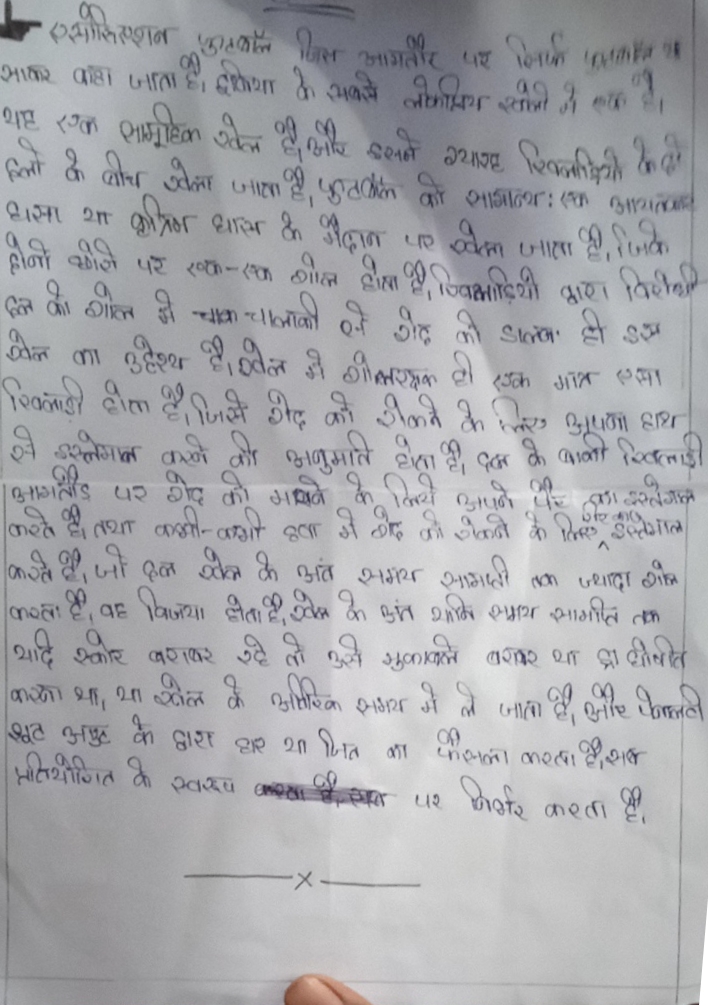 एसोसिएशन फुटबॉल जिसे आमतौर पर सिर्फ फुटबॉल या
साकर कहा जाता है, दुनिया के सबसे लोकप्रिय खेलों में एक है।
यह एक सामूहिक खेल है, और इसमे ग्यारह खिलाड़ियो के दो
दलो के बीच खेला जाता है, फुटबॉल को सामान्य: एक आयताकार
घास या कृत्रिम घास के मैदान पर खेला जाता है, जिके
दोनो छोरो पर एक-एक गोल होता है, खिलाड़ियो द्वारा विरोधी
दल के गोल मे चाक-चालाकी से गेंद को डालना ही इस
खेल का उद्देश्य है, खेल मे गोलरक्षक ही एक मात्र एसा
खिलाड़ी होता है, जिसे गेंद को रोकने के लिए अपना हाथ
से इस्तेमाल करने की अनुमति होता है, दल के बाकी खिलाड़ी
आमतौड पर गेंद को मारने के लिये अपने पैर का इस्तेमाल
करते है, तथा कभी-कभी हवा मे गेंद को रोकने के लिए इस्तेमाल
करते है, जो दल खेल के अंत समय सामाप्ती तक ज्यादा गोल
करता है, वह विजया होता है, खेल के अंत यानि समय सामाप्ति तक
यदि स्कोर बराबर रहे तो उसे मुकाबले बराबर या ड्रा घोषीत
करना या, या खेल के अतिरिक समय मे ले जाता है, और पेनाल्टी
शूट अपुट के द्वारा हार या जित का फैसला करता है, सब
प्रतियोगित के स्वरूप पर निर्भर करता है,